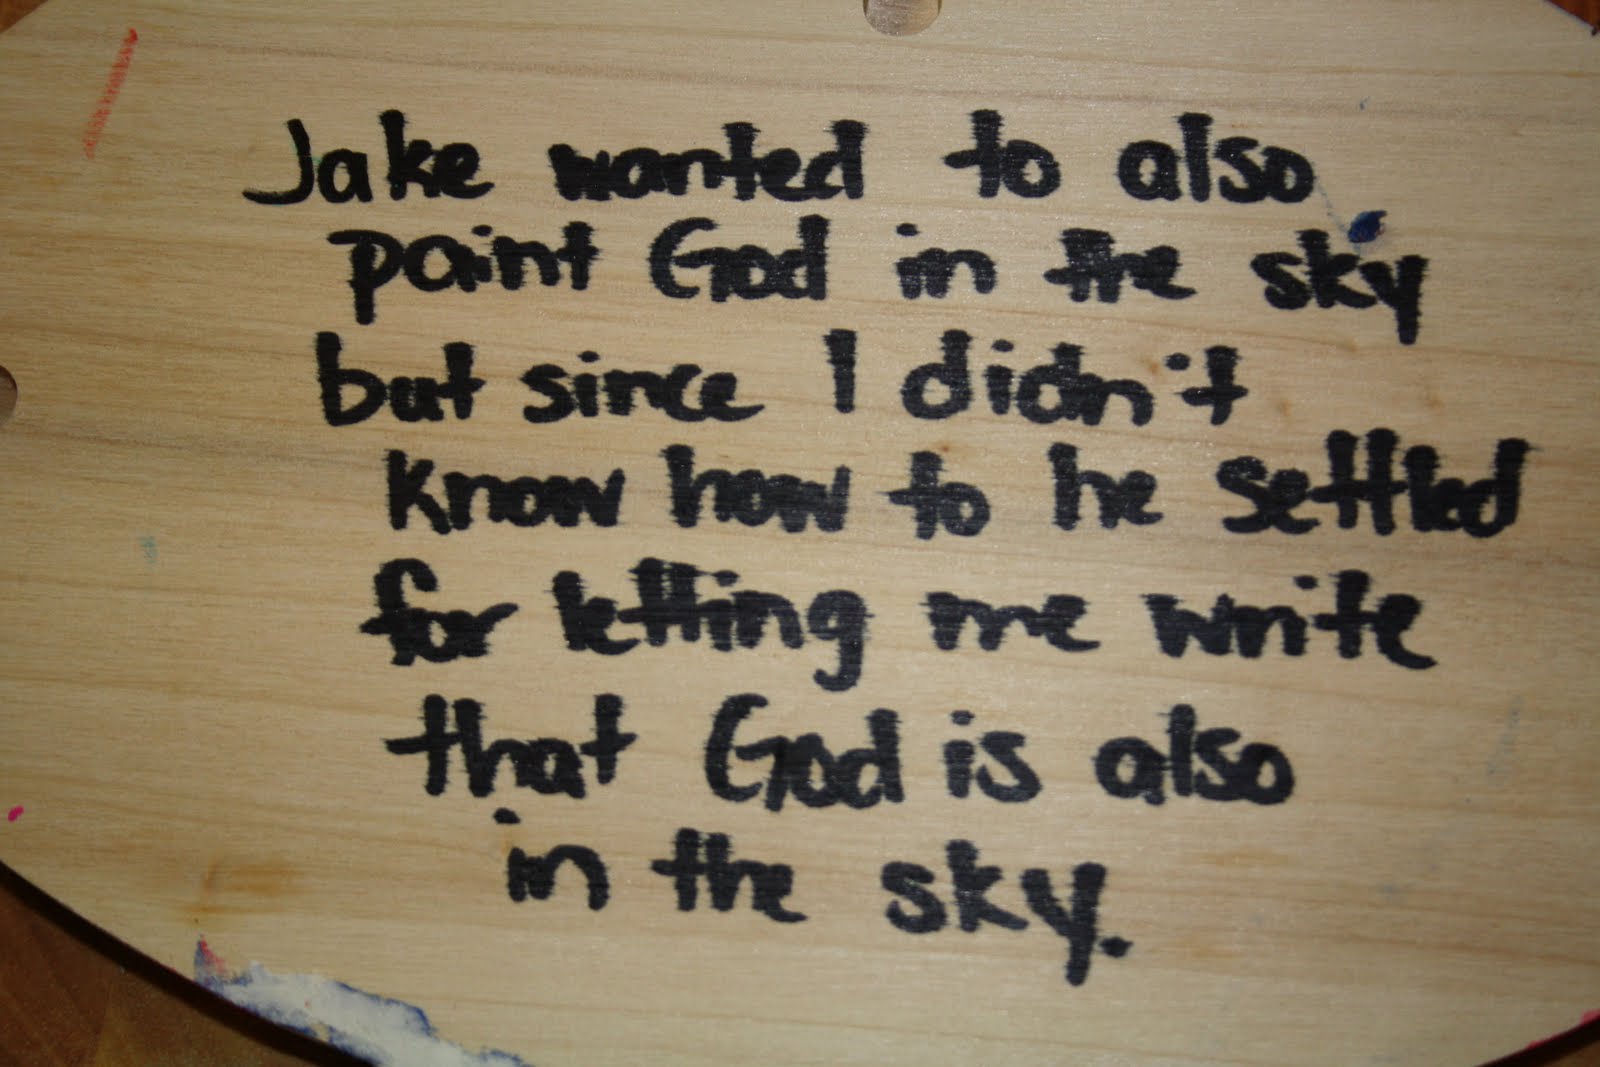 Jake wanted to also
paint God in the sky
but since I didn't
know how to he settled
for letting me write
that God is also
in the sky.